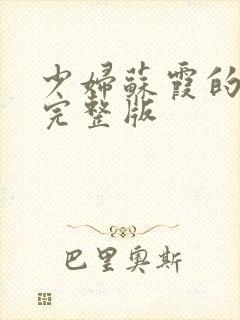 少婦蘇霞的
完整版
巴里奧斯